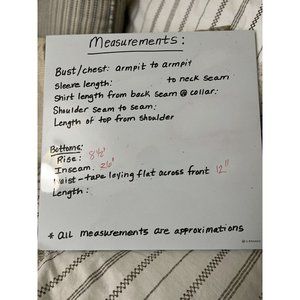 Measurements:
Bust/chest: armpit to armpit
Sleeve length: to neck seam
Shirt length from back seam @ collar:
Shoulder seam to seam:
Length of top from shoulder
Bottoms:
Rise: 8½"
Inseam: 26"
Waist - tape laying flat across front 12"
Length:
* all measurements are approximations